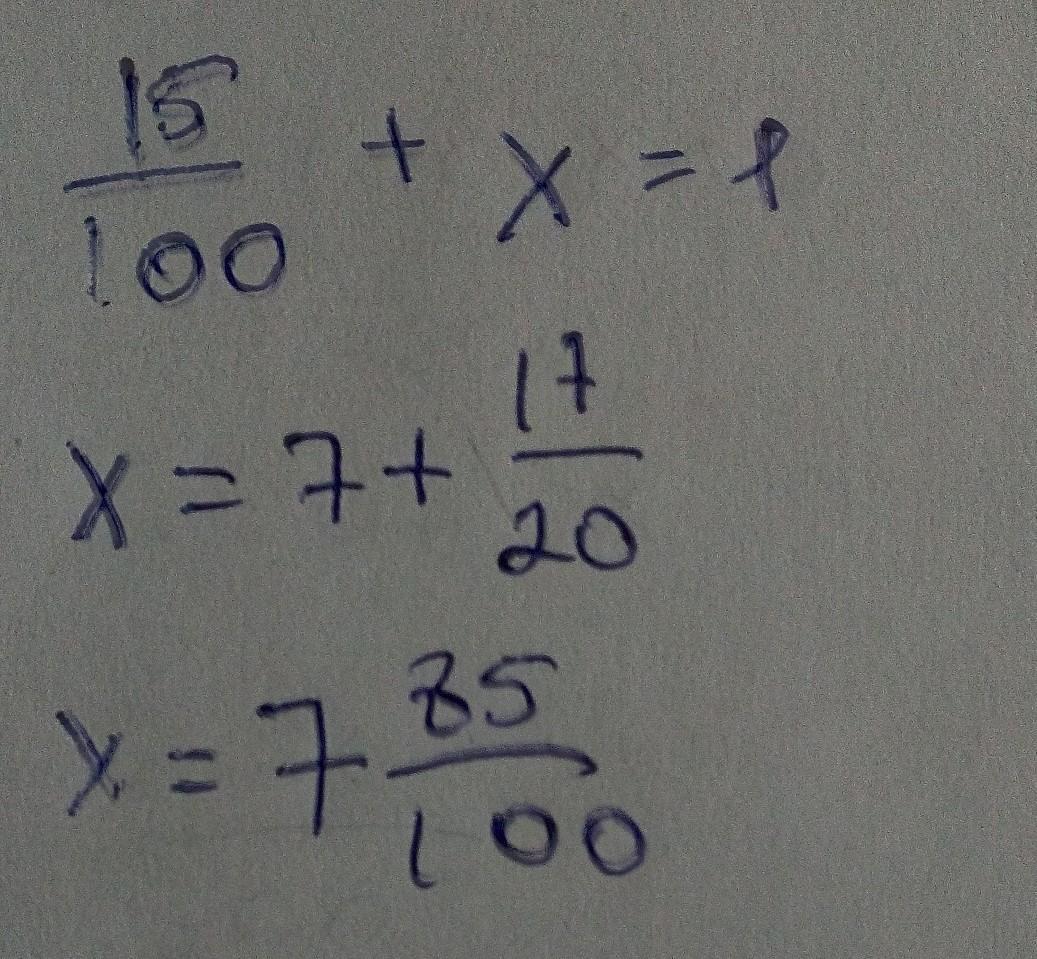 15/100 + x = 8
x = 7 + 17/20
x = 7 85/100